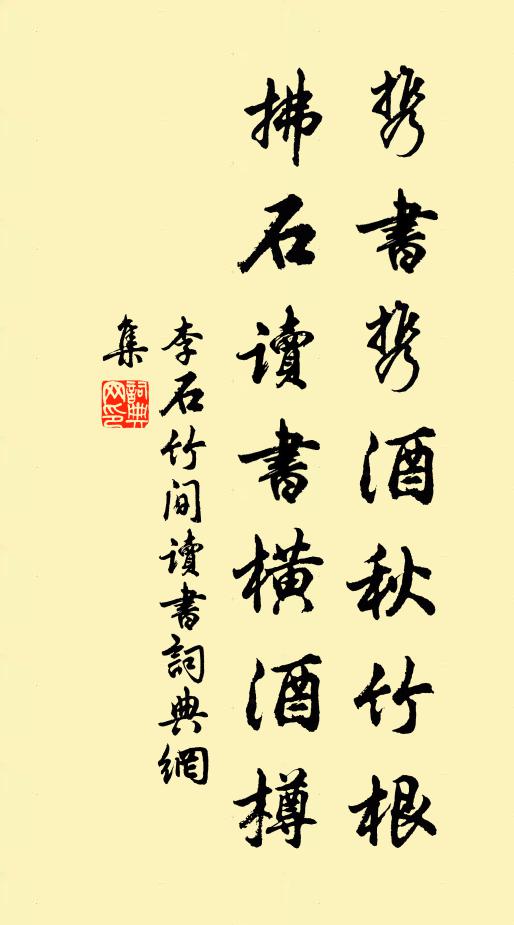 携書携酒秋竹根
拂石讀書橫酒樽
李石竹間讀書詞典網
集
詞典網印